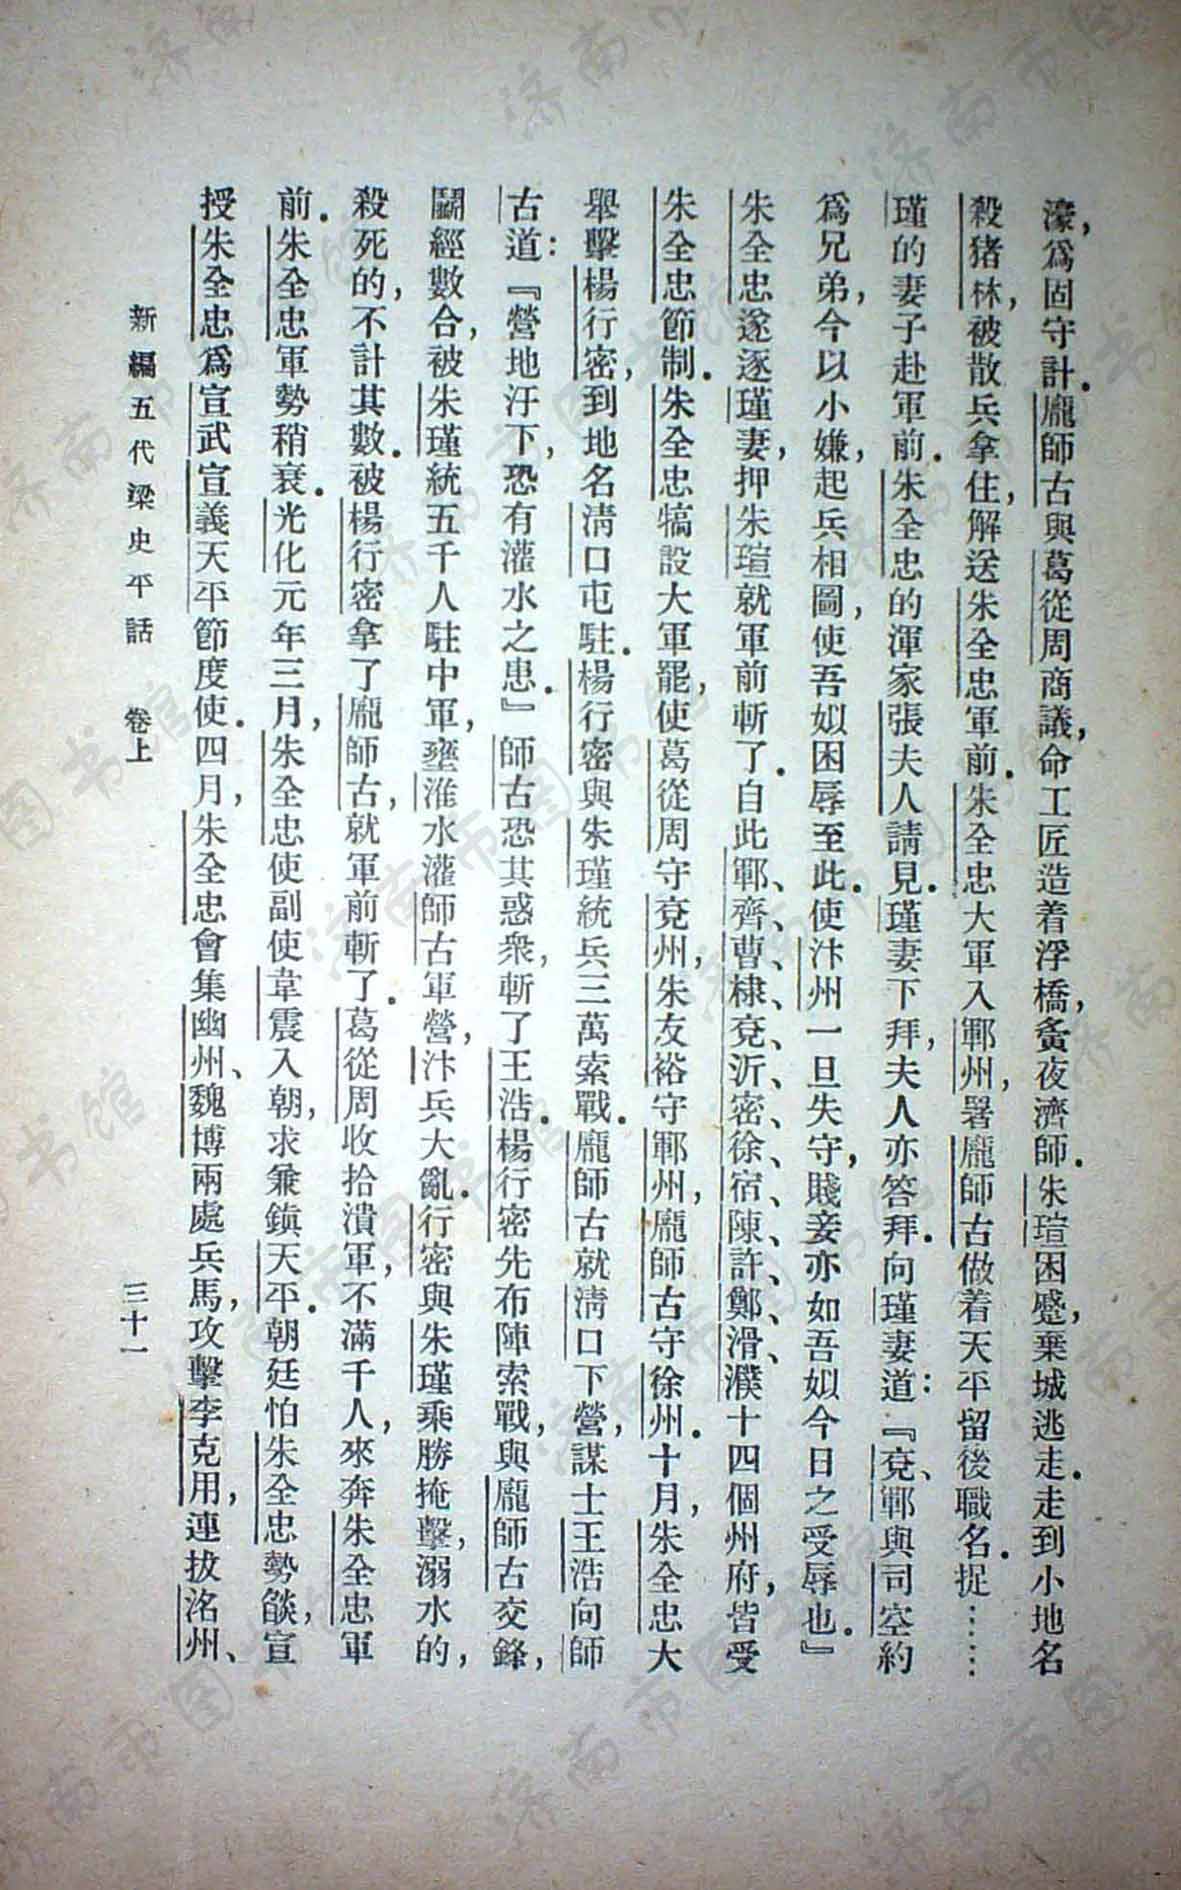 濠，爲固守計．龐師古與葛從周商議，命工匠造着浮橋，夤夜濟師．朱瑄困蹙，棄城逃走．走到小地名
殺猪林，被散兵拿住，解送朱全忠軍前．朱全忠大軍入鄆州，署龐師古做着天平留後職名．捉……
瑾的妻子赴軍前．朱全忠的渾家張夫人請見．瑾妻下拜，夫人亦答拜．向瑾妻道：『兗、鄆與司空約
爲兄弟，今以小嫌，起兵相圖，使吾姒困辱至此．使汴州一旦失守，賤妾亦如吾姒今日之受辱也．』
朱全忠遂逐瑾妻，押朱瑄就軍前斬了．自此鄆、齊、曹、棣、兗、沂、密、徐、宿、陳、許、鄭、滑、濮十四個州府，皆受
朱全忠節制．朱全忠犒設大軍罷，使葛從周守兗州，朱友裕守鄆州，龐師古守徐州．十月，朱全忠大
舉擊楊行密，到地名淸口屯駐．楊行密與朱瑾統兵三萬索戰．龐師古就淸口下營，謀士王浩向師
古道：『營地汙下，恐有灌水之患．』師古恐其惑衆，斬了王浩．楊行密先布陣索戰，與龐師古交鋒，
鬭經數合，被朱瑾統五千人駐中軍，壅淮水灌師古軍營，汴兵大亂．行密與朱瑾乘勝掩擊，溺水的，
殺死的，不計其數．被楊行密拿了龐師古，就軍前斬了．葛從周收拾潰軍，不滿千人，來奔朱全忠軍
前．朱全忠軍勢稍衰．光化元年三月，朱全忠使副使韋震入朝，求兼鎭天平．朝廷怕朱全忠勢燄，宣
授朱全忠爲宣武宣義天平節度使．四月，朱全忠會集幽州、魏博兩處兵馬，攻擊李克用，連拔洺州、
新編五代梁史平話 卷上 三十一
济南市图书馆